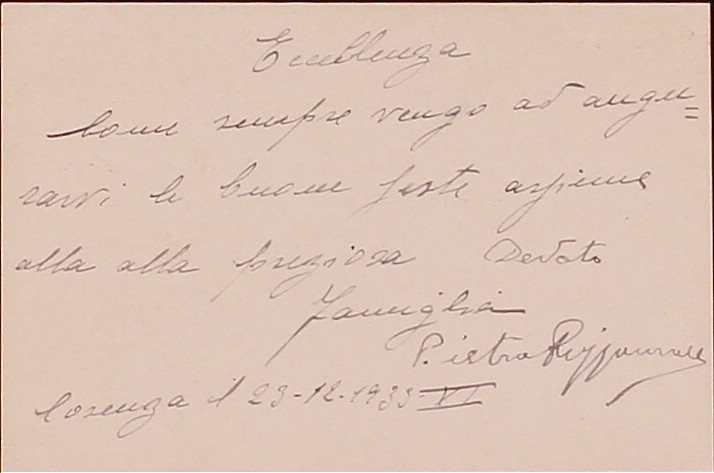 Eccellenza
Come sempre vengo ad augu=
rarvi le buone feste assieme
alla alla preziosa Devoto
famiglia
Pietro
Cosenza il 23-12-1933-XI